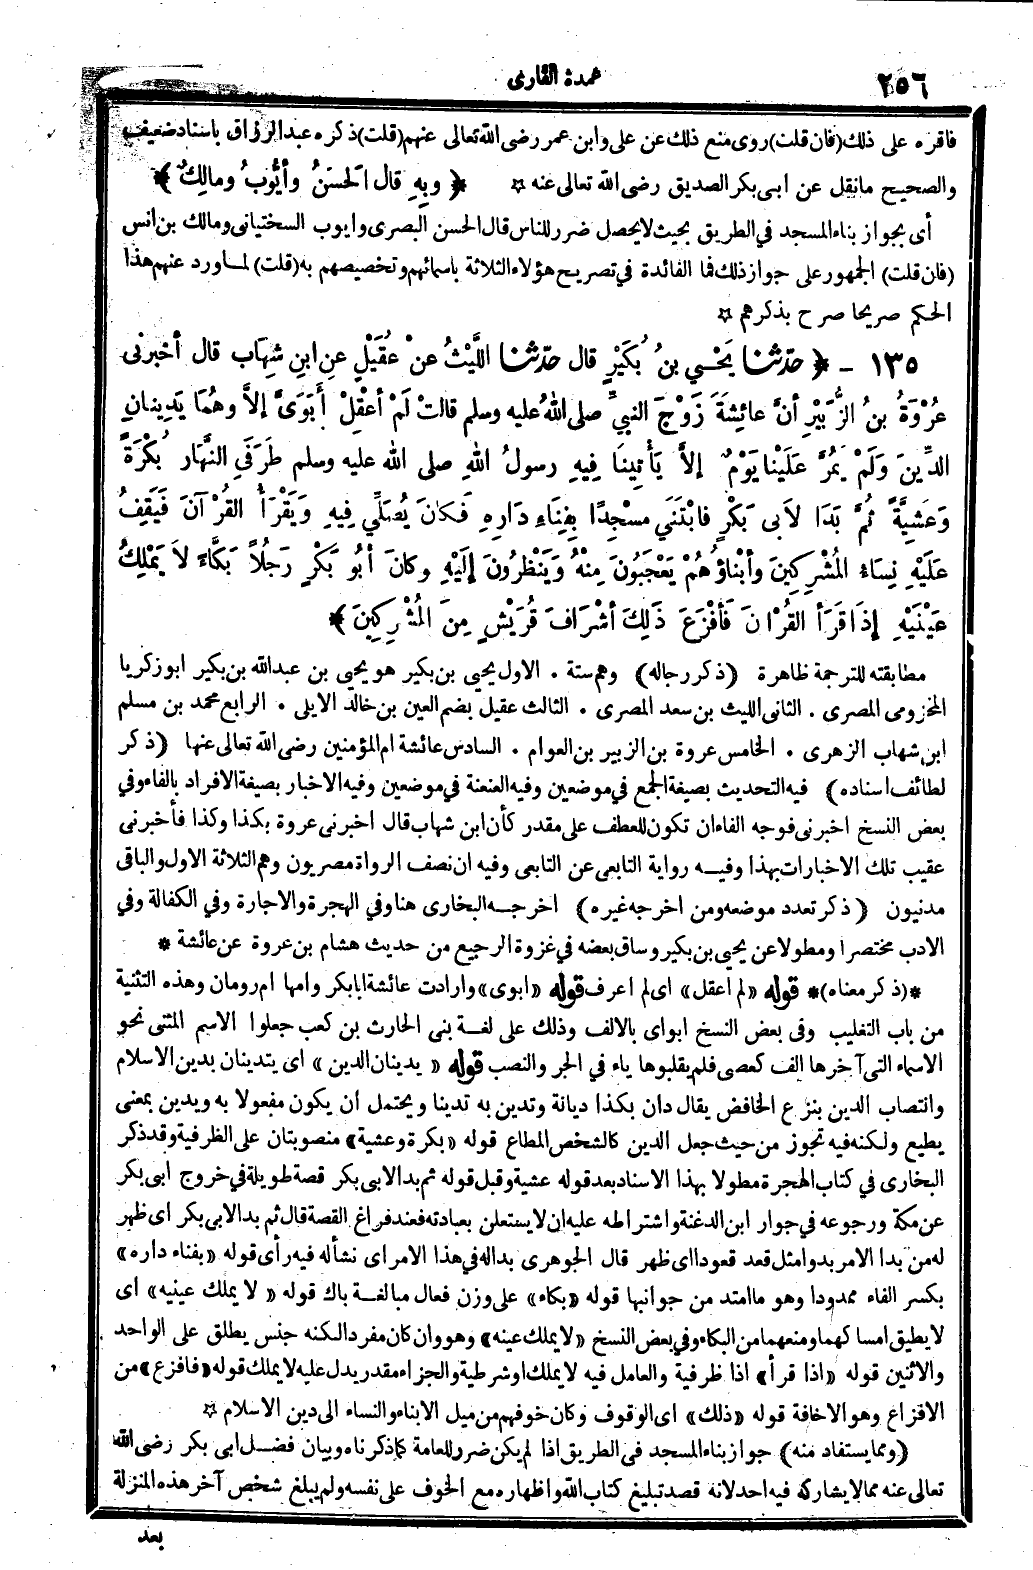 ٢٥٦
عمدة القارى
فاقره على ذلك (فان قلت) روى منع ذلك عن على وابن عمر رضى الله تعالى عنهم (قلت) ذكره عبد الرزاق باسناد ضعيف
والصحيح مانقل عن ابى بكر الصديق رضى الله تعالى عنه ☆ ﴿ وبِهِ قال الحَسَنُ وأيُّوبُ ومالِكٌ ﴾
أى بجواز بناء المسجد في الطريق بحيث لايحصل ضرر للناس قال الحسن البصرى وايوب السختيانى ومالك بن انس
(فان قلت) الجمهور على جواز ذلك فما الفائدة في تصريح هؤلاء الثلاثة باسمائهم وتخصيصهم به (قلت) لما ورد عنهم هذا
الحكم صريحا صرح بذكرهم ☆
١٣٥ - ﴿ حدّثنا يَحْيي بنُ بُكَيْرٍ قال حدّثنا اللَّيْثُ عنْ عُقَيْلٍ عنِ ابنِ شِهَاب قال أخبرنى
عُرْوَةُ بنُ الزُّبَيْرِ أنَّ عائِشَةَ زَوْجَ النبيِّ صلى اللهُ عليه وسلم قالتْ لَمْ أعْقِلْ أبَوَيَّ إلاَّ وهُمَا يَدِينانِ
الدِّينَ وَلَمْ يَمُرَّ عَلَيْنا يَوْمٌ إلاَّ يَأْتِينَا فِيهِ رسولُ اللهِ صلى الله عليه وسلم طَرَفَيِ النَّهَارِ بُكْرَةً
وَعَشِيَّةً ثُمَّ بَدَا لاَبى بَكْرٍ فابْتَنَي مسْجِدًا بِفِنَاءِ دَارِهِ فَكانَ يُصَلِّي فِيهِ وَيَقْرَأُ القُرْآنَ فَيَقِفُ
عَلَيْهِ نِساءُ المُشْرِكِينَ وأبْناؤُهُمْ يَعْجَبُونَ مِنْهُ وَيَنْظُرُونَ إلَيْهِ وكانَ أبُو بَكْرٍ رَجُلاً بَكَّاءً لاَ يَمْلِكُ
عَيْنَيْهِ إذَا قَرَأ القُرْانَ فَأفْزَعَ ذَلِكَ أشْرَافَ قُرَيْشٍ مِنَ المُشْرِكِينَ ﴾*
مطابقته للترجمة ظاهرة (ذكر رجاله) وهم ستة . الاول يحيي بن بكير هو يحيي بن عبد الله بن بكير ابو زكريا
المخزومى المصرى . الثانى الليث بن سعد المصرى . الثالث عقيل بضم العين بن خالد الايلى . الرابع محمد بن مسلم
ابن شهاب الزهرى . الخامس عروة بن الزبير بن العوام . السادس عائشة ام المؤمنين رضى الله تعالى عنها (ذكر
لطائف اسناده) فيه التحديث بصيغة الجمع في موضعين وفيه العنعنة في موضعين وفيه الاخبار بصيغة الافراد بالفاء وفي
بعض النسخ اخبرنى فوجه الفاء ان تكون للعطف على مقدر كأن ابن شهاب قال اخبرنى عروة بكذا وكذا فأخبرنى
عقيب تلك الاخبارات بهذا وفيه رواية التابعى عن التابعى وفيه ان نصف الرواة مصريون وهم الثلاثة الاول والباقى
مدنيون (ذكر تعدد موضعه ومن اخرجه غيره) اخرجه البخارى هنا وفي الهجرة والاجارة وفي الكفالة وفي
الادب مختصرا ومطولا عن يحيي بن بكير وساق بعضه في غزوة الرجيع من حديث هشام بن عروة عن عائشة *
*(ذكر معناه)* قوله «لم اعقل» اى لم اعرف قوله «ابوى» وارادت عائشة ابابكر وامها ام رومان وهذه التثنية
من باب التغليب وفي بعض النسخ ابواى بالالف وذلك على لغة بنى الحارث بن كعب جعلوا الاسم المثنى نحو
الاسماء التى آخرها الف كعصى فلم يقلبوها ياء في الجر والنصب قوله « يدينان الدين » اى يتدينان بدين الاسلام
وانتصاب الدين بنزع الخافض يقال دان بكذا ديانة وتدين به تدينا ويحتمل ان يكون مفعولا به ويدين بمعنى
يطيع ولكنه فيه تجوز من حيث جعل الدين كالشخص المطاع قوله «بكرة وعشية» منصوبتان على الظرفية وقد ذكر
البخارى في كتاب الهجرة مطولا بهذا الاسناد بعد قوله عشية وقبل قوله ثم بدا لابى بكر قصة طويلة في خروج ابى بكر
عن مكة ورجوعه في جوار ابن الدغنة واشتراطه عليه ان لايستعلن بعبادته فعند فراغ القصة قال ثم بدا لابى بكر اى ظهر
له من بدا الامر بدوا مثل قعد قعودا اى ظهر قال الجوهرى بدا له في هذا الامر اى نشأ له فيه رأى قوله «بفناء داره»
بكسر الفاء ممدودا وهو ما امتد من جوانبها قوله «بكاء» على وزن فعال مبالغة باك قوله « لا يملك عينيه» اى
لا يطيق امساكهما ومنعهما من البكاء وفي بعض النسخ «لا يملك عينه» وهو وان كان مفردا لكنه جنس يطلق على الواحد
والاثنين قوله «اذا قرأ» اذا ظرفية والعامل فيه لا يملك او شرطية والجزاء مقدر يدل عليه لا يملك قوله «فافزع» من
الافزاع وهو الاخافة قوله «ذلك» اى الوقوف وكان خوفهم من ميل الابناء والنساء الى دين الاسلام ☆
(ومما يستفاد منه) جواز بناء المسجد في الطريق اذا لم يكن ضرر للعامة كما ذكرناه وبيان فضل ابى بكر رضى الله
تعالى عنه مما لا يشاركه فيه احد لانه قصد تبليغ كتاب الله واظهاره مع الخوف على نفسه ولم يبلغ شخص آخر هذه المنزلة
بعد